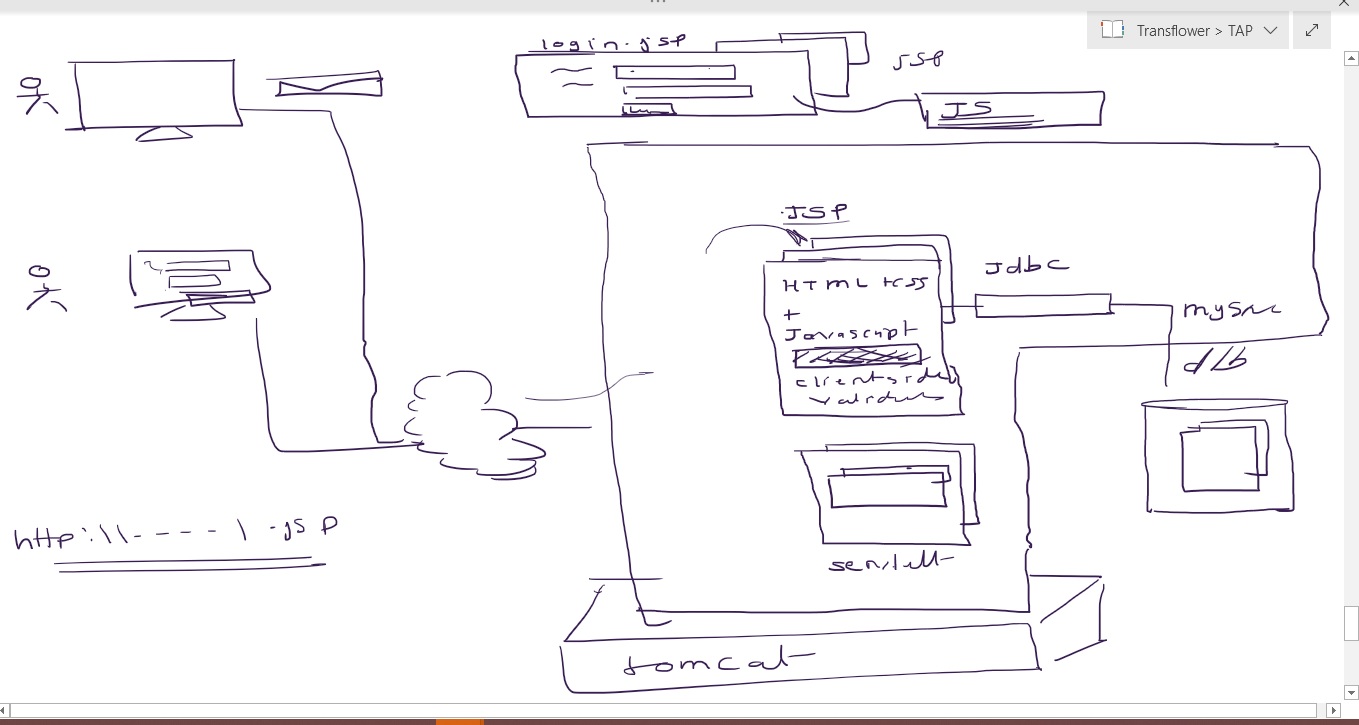 Transflower > TAP
login.jsp
JSP
JS
.JSP
HTML +CSS
+
Javascript
client side
Jdbc
mysql
d/b
servlett
http:\\- - - - \ -jsp
tomcat